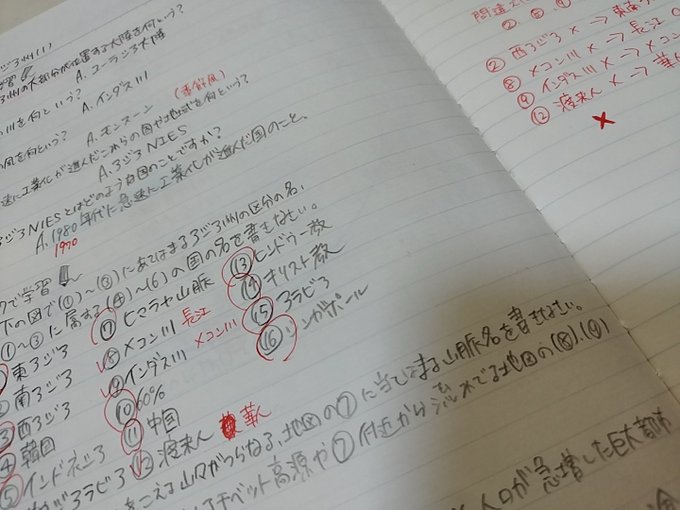 ジア州(1)
学習!
ア州の大部分が位置する大陸を何という?
A. ユーラシア大陸
川を何という?
A. インダス川
風を何という?
A. モンスーン (季節風)
速に工業化が進んだこれらの国や地域を何という?
A. アジアNIES
ジアNIESとはどのような国のことですか?
A. 1980年代に急速に工業化が進んだ国のこと。
1970
クで学習!
下の図で(1)〜(3)にあてはまるアジア州の区分の名、
①〜③に属する(4)〜(6)の国の名を書きなさい。
東アジア
南アジア
③西アジア
④韓国
⑤インドネシア
サウジアラビア
⑦ヒマラヤ山脈
⑧メコン川 長江
⑨インダス川 メコン川
⑩60%
⑪中国
⑫渡来人 華人
⑬ヒンドゥー教
⑭キリスト教
⑮アラビア
⑯シンガポール
こえる山々がつらなる、地図の⑦に当てはまる山脈名を書きなさい。
チベット高原や⑦付近から流れでる地図の(8).(9)
人口が急増した巨大都市
間違えた
② ⑧ ⑨
②西アジア × → 東
⑧メコン川 × → 長江
⑨インダス川 × → メコン
⑫渡来人 × → 華人
×